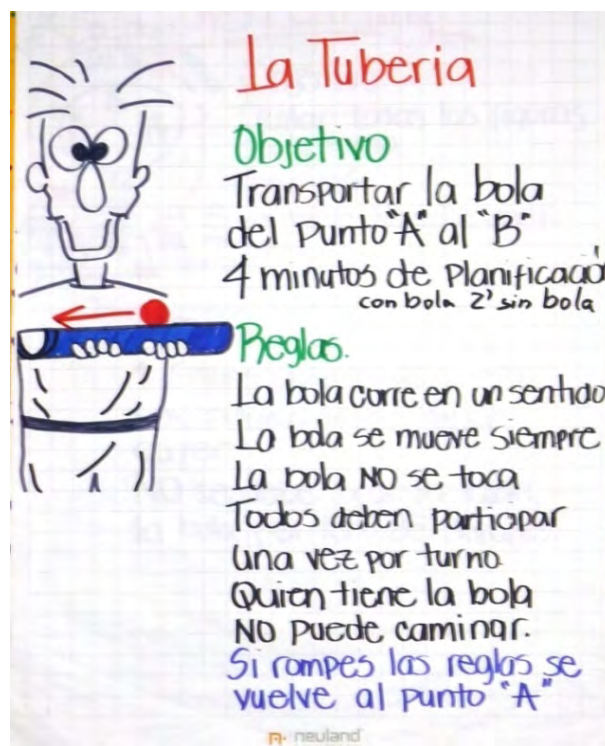 La Tuberia
Objetivo
Transportar la bola
del Punto "A" al "B"
4 minutos de Planificación
con bola 2' sin bola
Reglas.
La bola corre en un sentido
La bola se mueve siempre
La bola NO se toca
Todos deben participar
una vez por turno.
Quien tiene la bola
NO puede caminar.
Si rompes las reglas se
vuelve al punto "A"
neuland